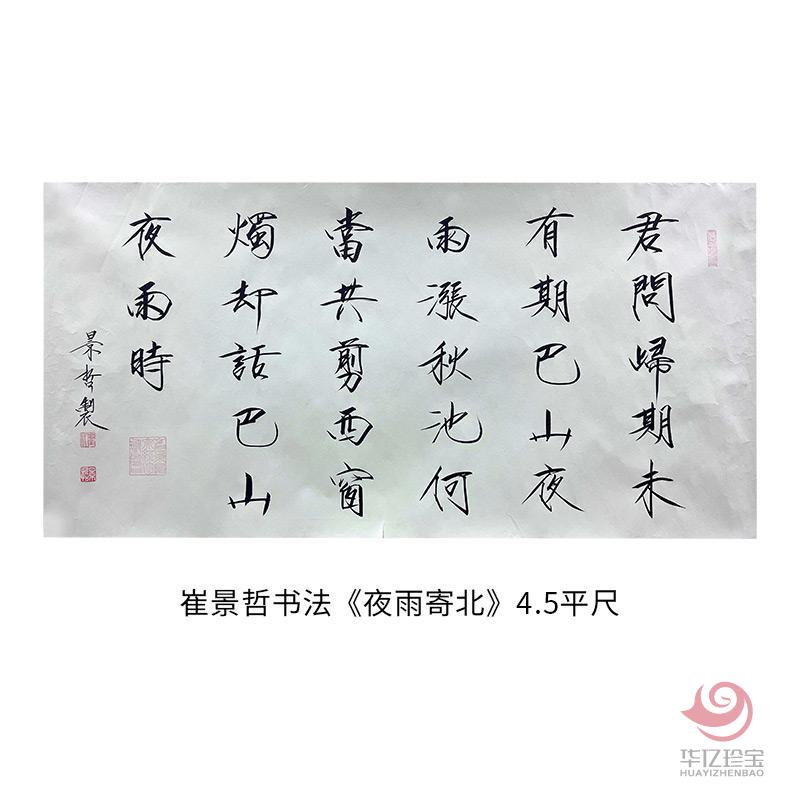 君問歸期未
有期巴山夜
雨漲秋池何
當共剪西窗
燭却話巴山
夜雨時
景哲製
崔景哲书法《夜雨寄北》4.5平尺
华亿珍宝
HUAYIZHENBAO